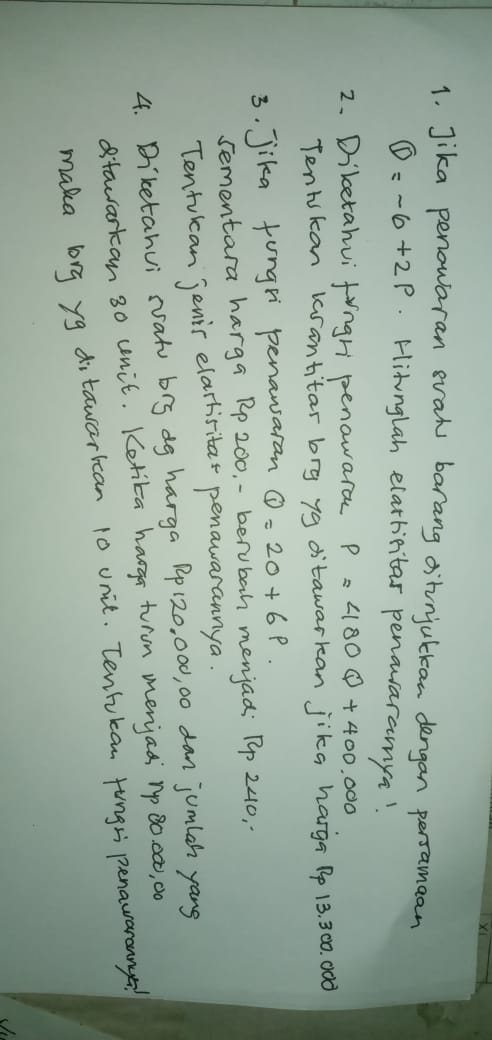 1. Jika penawaran suatu barang ditunjukkan dengan persamaan
Q = -6 + 2P. Hitunglah elastisitas penawarannya!
2. Diketahui fungsi penawaran P = 480 Q + 400.000
Tentukan kuantitas brg yg ditawarkan jika harga Rp 13.300.000
3. Jika fungsi penawaran Q = 20 + 6P.
Sementara harga Rp 200,- berubah menjadi Rp 240,-
Tentukan jenis elastisitas penawarannya.
4. Diketahui suatu brg dg harga Rp 120.000,00 dan jumlah yang
ditawarkan 30 unit. Ketika harga turun menjadi Rp 80.000,00
maka brg yg ditawarkan 10 unit. Tentukan fungsi penawarannya!